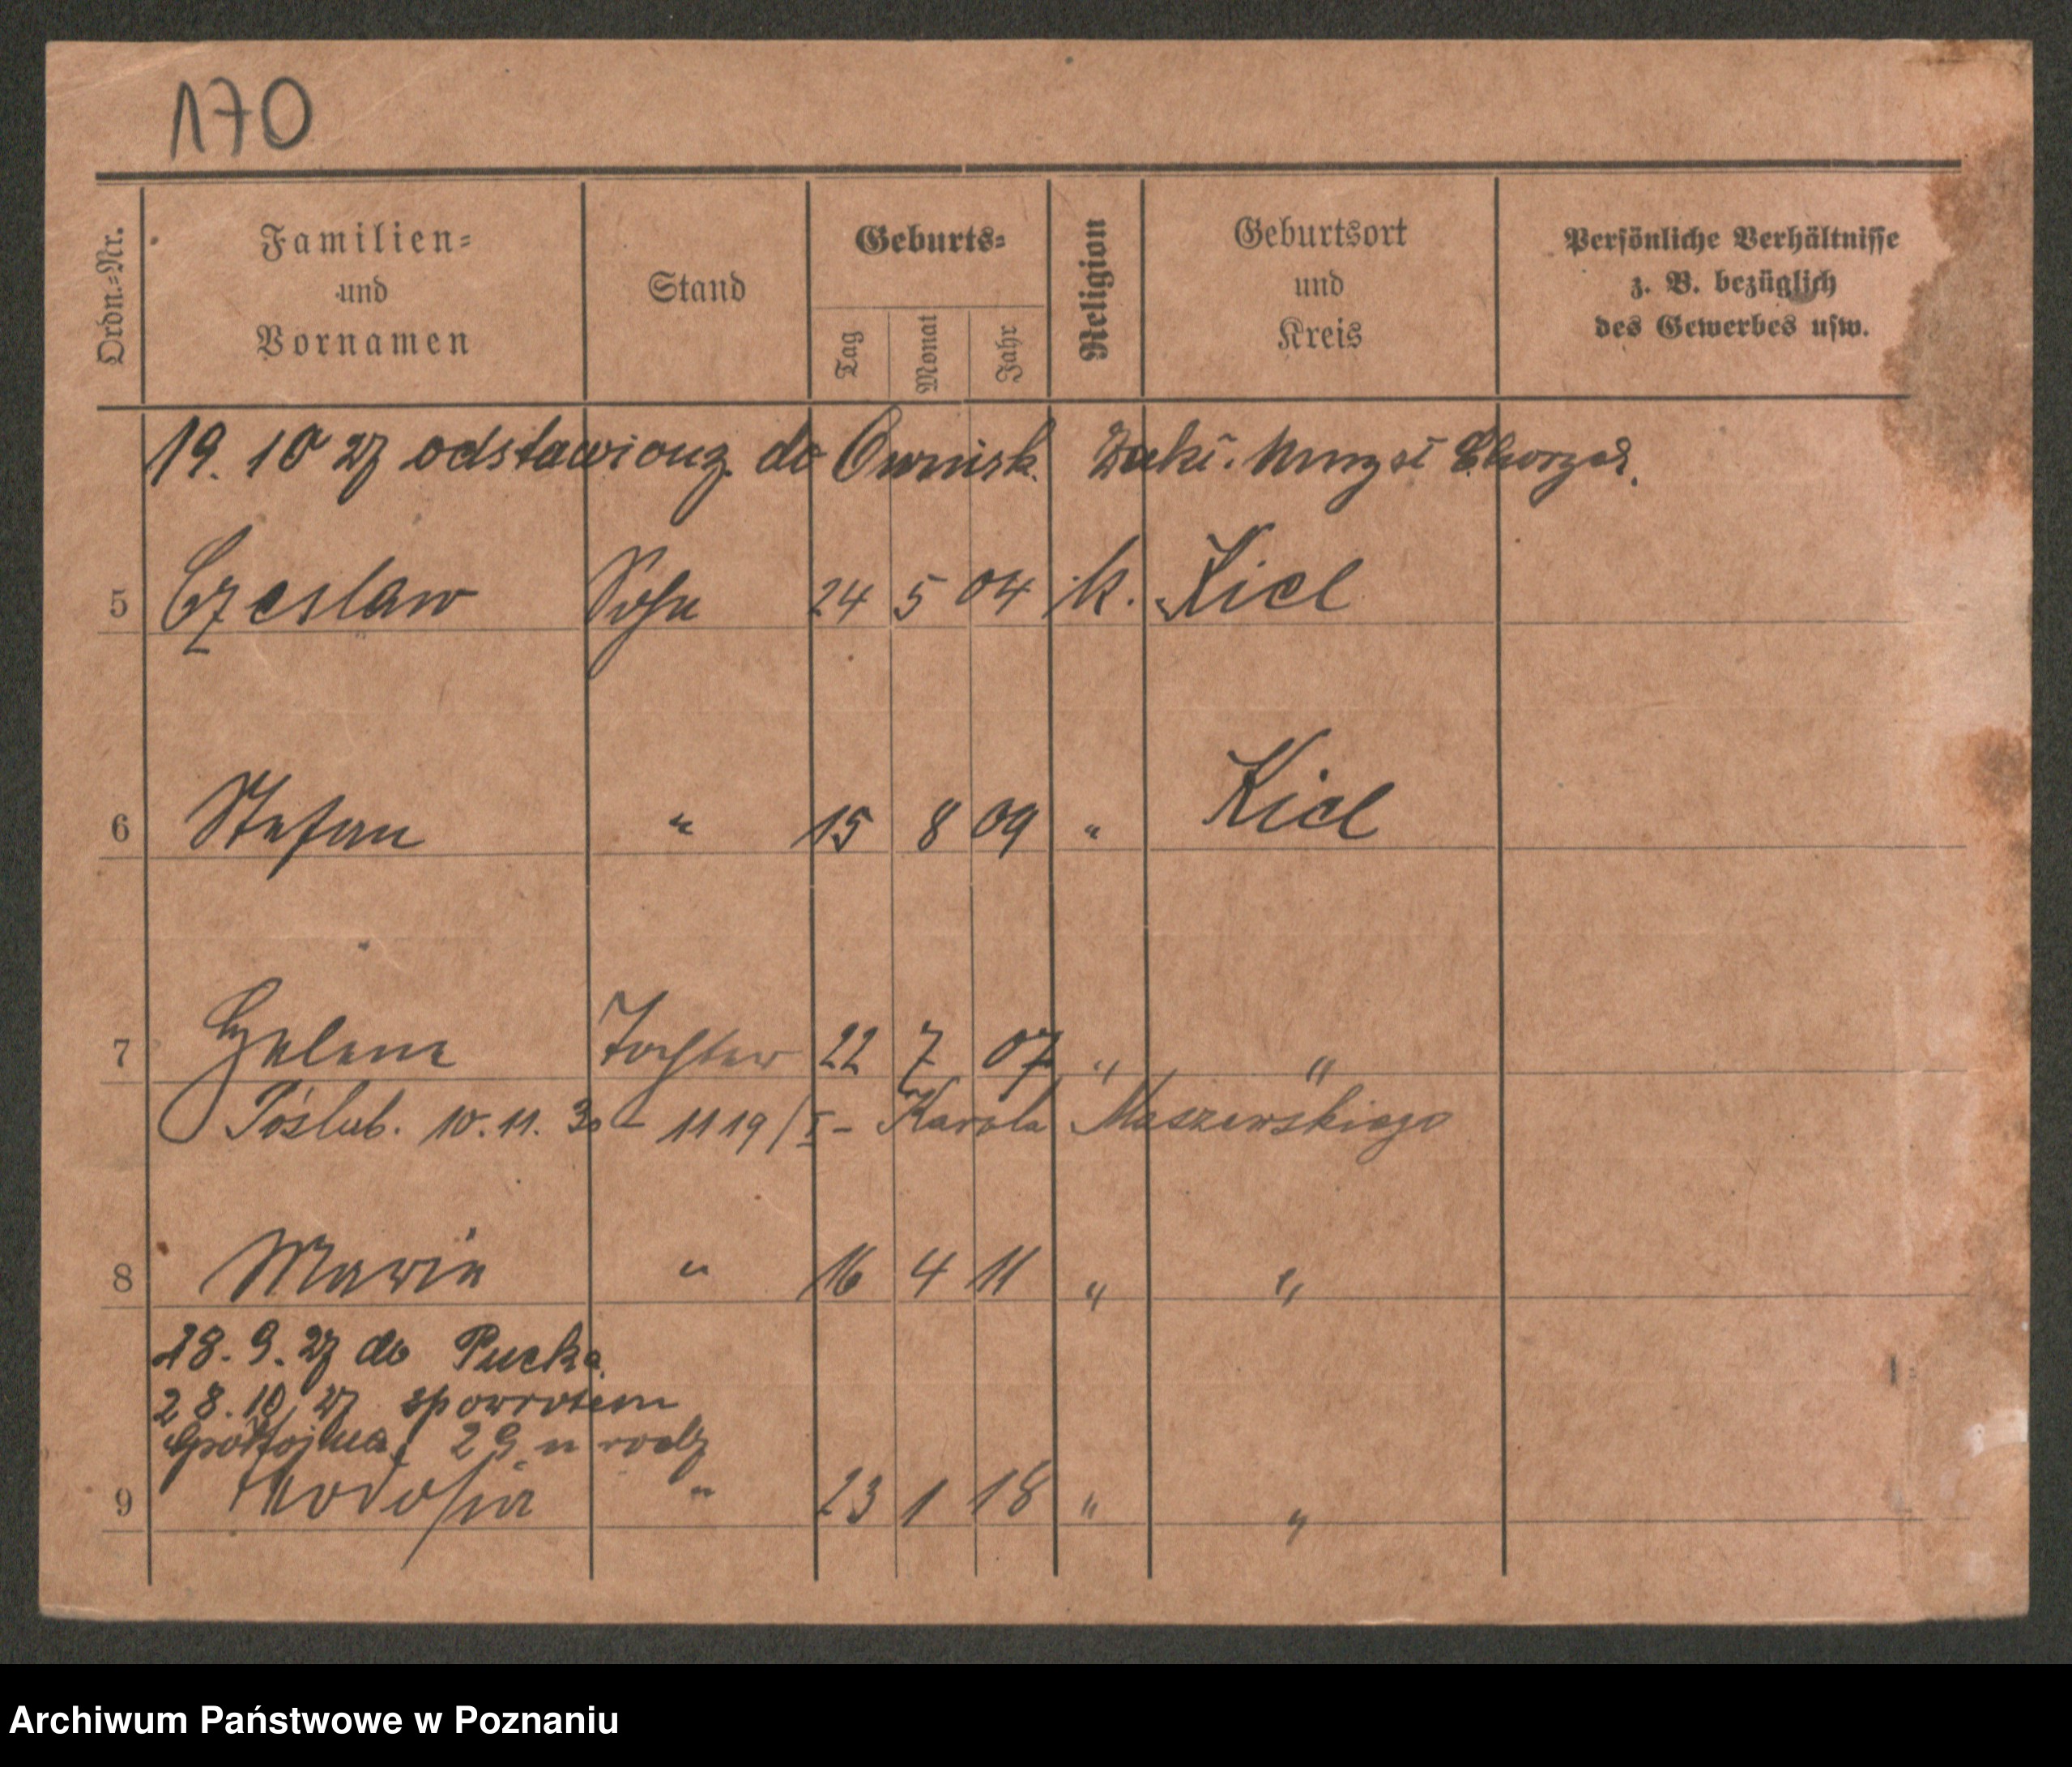 170
Ordn.-Nr.
Familien-
und
Vornamen
Stand
Geburts-
Tag
Monat
Jahr
Religion
Geburtsort
und
Kreis
Persönliche Verhältnisse
z. B. bezüglich
des Gewerbes usw.
19. 10 27 odstawiony do Owinsk
5 Czeslaw Sohn 24 5 04 k. Kiel
6 Stefan " 15 8 09 " Kiel
7 Helene Tochter 22 7 07 " "
Poślub. 10.11.30 - 1119/I - Karola Maszewskiego
8 Maria " 16 4 11 " "
28. 9. 27 do Pucka
28. 10 27 spowrotem
29 u rodz
9 " 23 1 18 " "
Archiwum Państwowe w Poznaniu